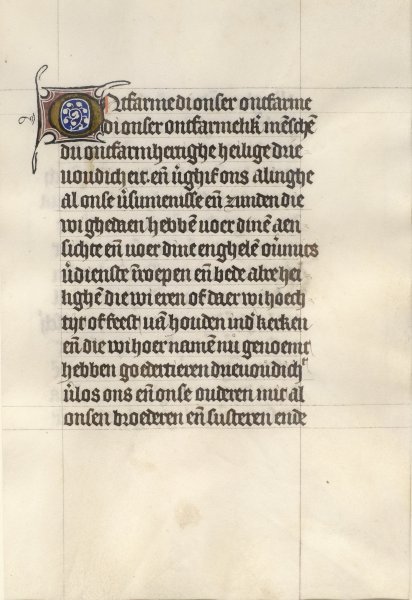 Ontfarme di onser ontfarme
di onser ontfarmelik̄ mēschē
du ontfarmhertighe heilige drie
uoudicheit. eñ v̄ghif ons alinghe
al onse v̄sumenisse eñ zunden die
wi ghedaen hebbē uoer dinē aen
sichte eñ uoer dine enghelē
v̄dienste aen roepen eñ bede alre hei
lighē die wi eren of daer wi hoech
tyt of feest uā houden ind' kerken
eñ die wi hoer namē nu genoemt
hebben goedertieren drieuoudich
v̄los ons eñ onse ouderen mit al
onsen broederen eñ susteren ende